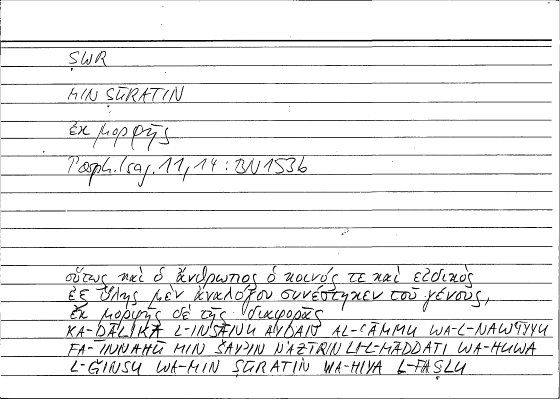 ṢWR
MIN ṢŪRATIN
ἐκ μορφῆς
Porph. Isag. 11, 14 : BN 153b
οὕτως καὶ ὁ ἄνθρωπος ὁ κοινός τε καὶ εἰδικὸς
ἐξ ὕλης μὲν ἀναλόγου συνέστηκεν τοῦ γένους,
ἐκ μορφῆς δὲ τῆς διαφορᾶς
KA-ḎĀLIKA L-INSĀNU AYḌAN AL-ʿĀMMU WA-L-NAWʿĪYU
FA-INNAHŪ MIN ŠAYʾIN NAẒĪRIN LI-L-MĀDDATI WA-HUWA
L-ǦINSU WA-MIN ṢŪRATIN WA-HIYA L-FAṢLU